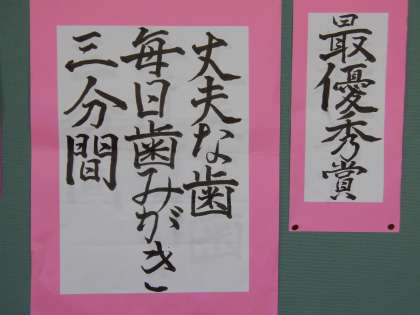 最優秀賞
丈夫な歯
毎日歯みがき
三分間